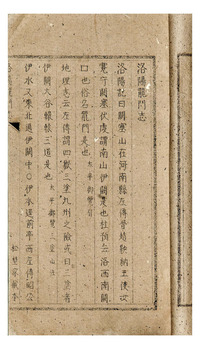 洛陽龍門志
洛陽記曰闕塞山在河南縣左傳晉趙鞅納王使女
寬守闕塞伏虔謂南山伊闕是也杜預云洛西南闕
口也俗名龍門是也太平御覽
地理志云左傳謂四嶽三塗九州之險也三塗者
伊闕大谷轘轅三道是也太平御覽
伊水又東北過伊闕中伊水逕前亭西左傳昭公